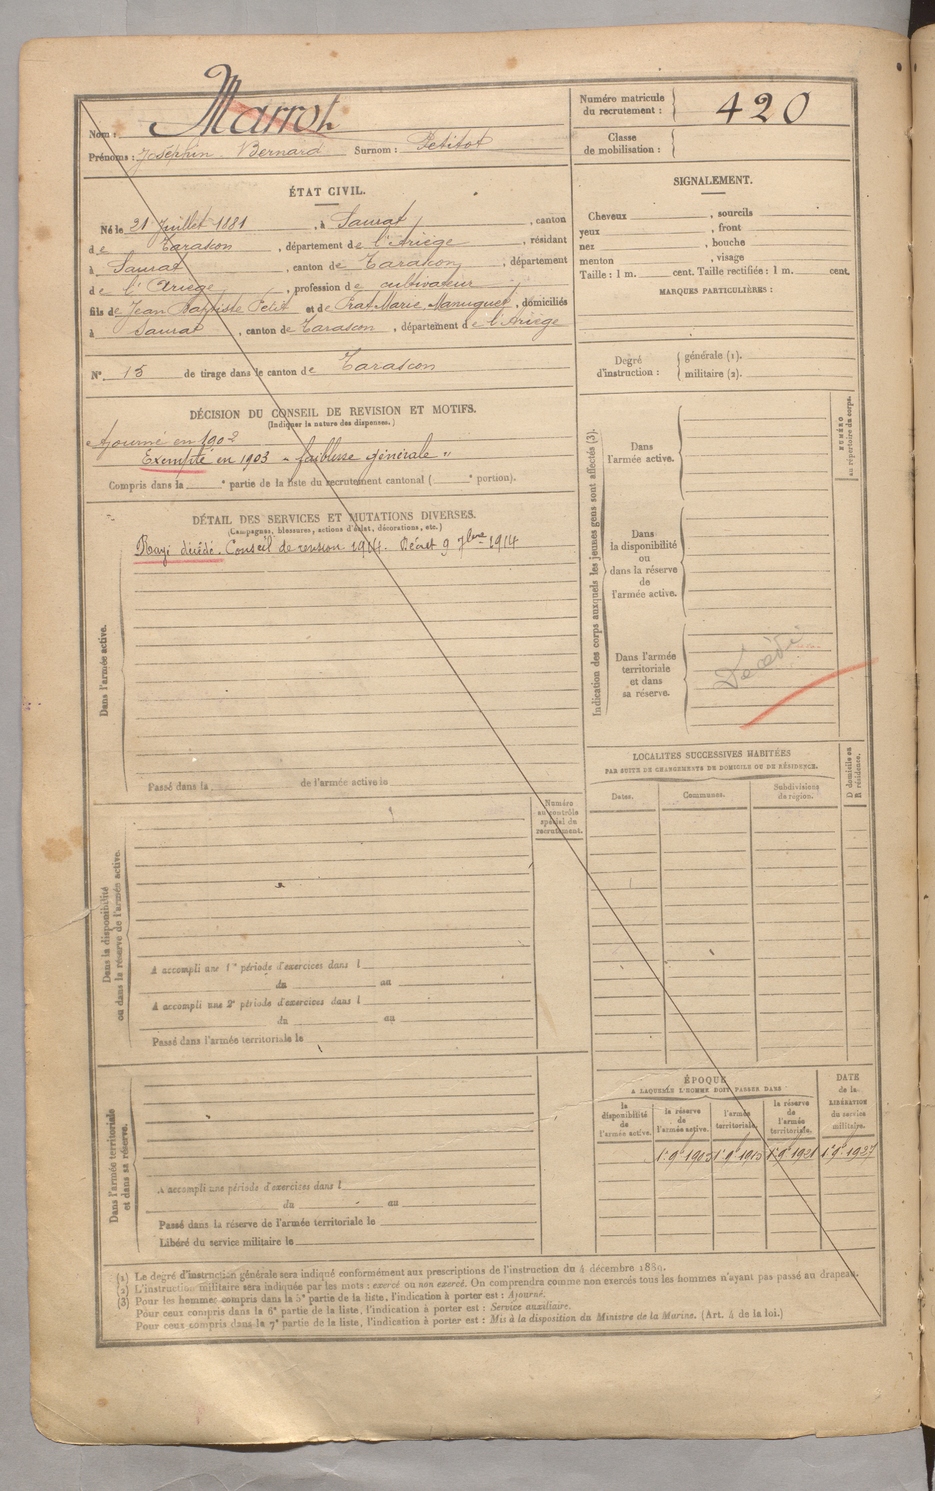 Nom : Marrot
Prénoms : Joséphin Bernard Surnom : Petitot
Numéro matricule du recrutement : 420
Classe de mobilisation :
ÉTAT CIVIL.
Né le 21 Juillet 1881, à Saurat, canton
de Tarascon, département de l'Ariège, résidant
à Saurat, canton de Tarascon, département
de l'Ariège, profession de cultivateur
fils de Jean Baptiste Petit et de Prat Marie Manuguet, domiciliés
à Saurat, canton de Tarascon, département de l'Ariège
N° 15 de tirage dans le canton de Tarascon
DÉCISION DU CONSEIL DE REVISION ET MOTIFS.
(Indiquer la nature des dispenses.)
Ajourné en 1902
Exempté en 1903 - faiblesse générale "
Compris dans la e partie de la liste du recrutement cantonal ( e portion).
DÉTAIL DES SERVICES ET MUTATIONS DIVERSES.
(Campagnes, blessures, actions d'éclat, décorations, etc.)
Rayé décédé. Conseil de revision 1914. Décret 9 7bre 1914
Dans l'armée active.
Passé dans la de l'armée active le
Numéro au contrôle spécial du recrutement.
Dans la disponibilité ou dans la réserve de l'armée active.
A accompli une 1re période d'exercices dans l
du au
A accompli une 2e période d'exercices dans l
du au
Passé dans l'armée territoriale le
Dans l'armée territoriale et dans sa réserve.
A accompli une période d'exercices dans l
du au
Passé dans la réserve de l'armée territoriale le
Libéré du service militaire le
SIGNALEMENT.
Cheveux , sourcils
yeux , front
nez , bouche
menton , visage
Taille : 1 m. cent. Taille rectifiée : 1 m. cent.
MARQUES PARTICULIÈRES :
Degré d'instruction : générale (1).
militaire (2).
Indication des corps auxquels les jeunes gens sont affectés (3).
NUMÉRO au répertoire du corps.
Dans l'armée active.
Dans la disponibilité ou dans la réserve de l'armée active.
Dans l'armée territoriale et dans sa réserve.
Décédé
LOCALITES SUCCESSIVES HABITÉES
PAR SUITE DE CHANGEMENTS DE DOMICILE OU DE RÉSIDENCE.
Dates. Communes. Subdivisions de région. D domicile ou R résidence.
ÉPOQUE
A LAQUELLE L'HOMME DOIT PASSER DANS
DATE de la LIBÉRATION du service militaire.
la disponibilité de l'armée active. la réserve de l'armée active. l'armée territoriale. la réserve de l'armée territoriale.
1er 9bre 1905 1er 9bre 1915 1er 9bre 1921 1er 9bre 1927
(1) Le degré d'instruction générale sera indiqué conformément aux prescriptions de l'instruction du 4 décembre 1889.
(2) L'instruction militaire sera indiquée par les mots : exercé ou non exercé. On comprendra comme non exercés tous les hommes n'ayant pas passé au drapeau.
(3) Pour les hommes compris dans la 5e partie de la liste, l'indication à porter est : Ajourné.
Pour ceux compris dans la 6e partie de la liste, l'indication à porter est : Service auxiliaire.
Pour ceux compris dans la 7e partie de la liste, l'indication à porter est : Mis à la disposition du Ministre de la Marine. (Art. 4 de la loi.)